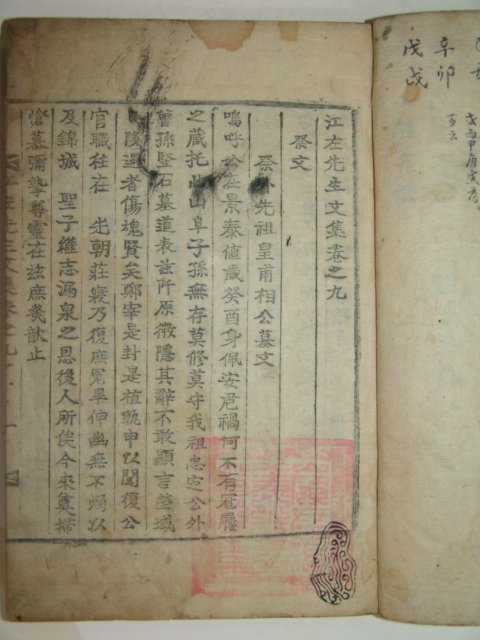 辛卯
戊戌
江左先生文集卷之九
祭文
祭外先祖皇甫相公墓文
嗚呼在景泰値歲癸酉身佩安危禍何不有冠屨
之藏托此山阜子孫無存莫修莫守我祖忠定公外
曾孫堅石墓道表玆阡原微隱其辭不敢顯言塋域
陵遲者傷愧賢矣鄭宰是封是植孰申以聞復公
官職往在 先朝莊寢乃復庶冤畢伸幽無不燭以
及錦城 聖子繼志漏泉之恩後人所俟今來奠掃
愴慕彌摯尊靈在玆庶幾歆止